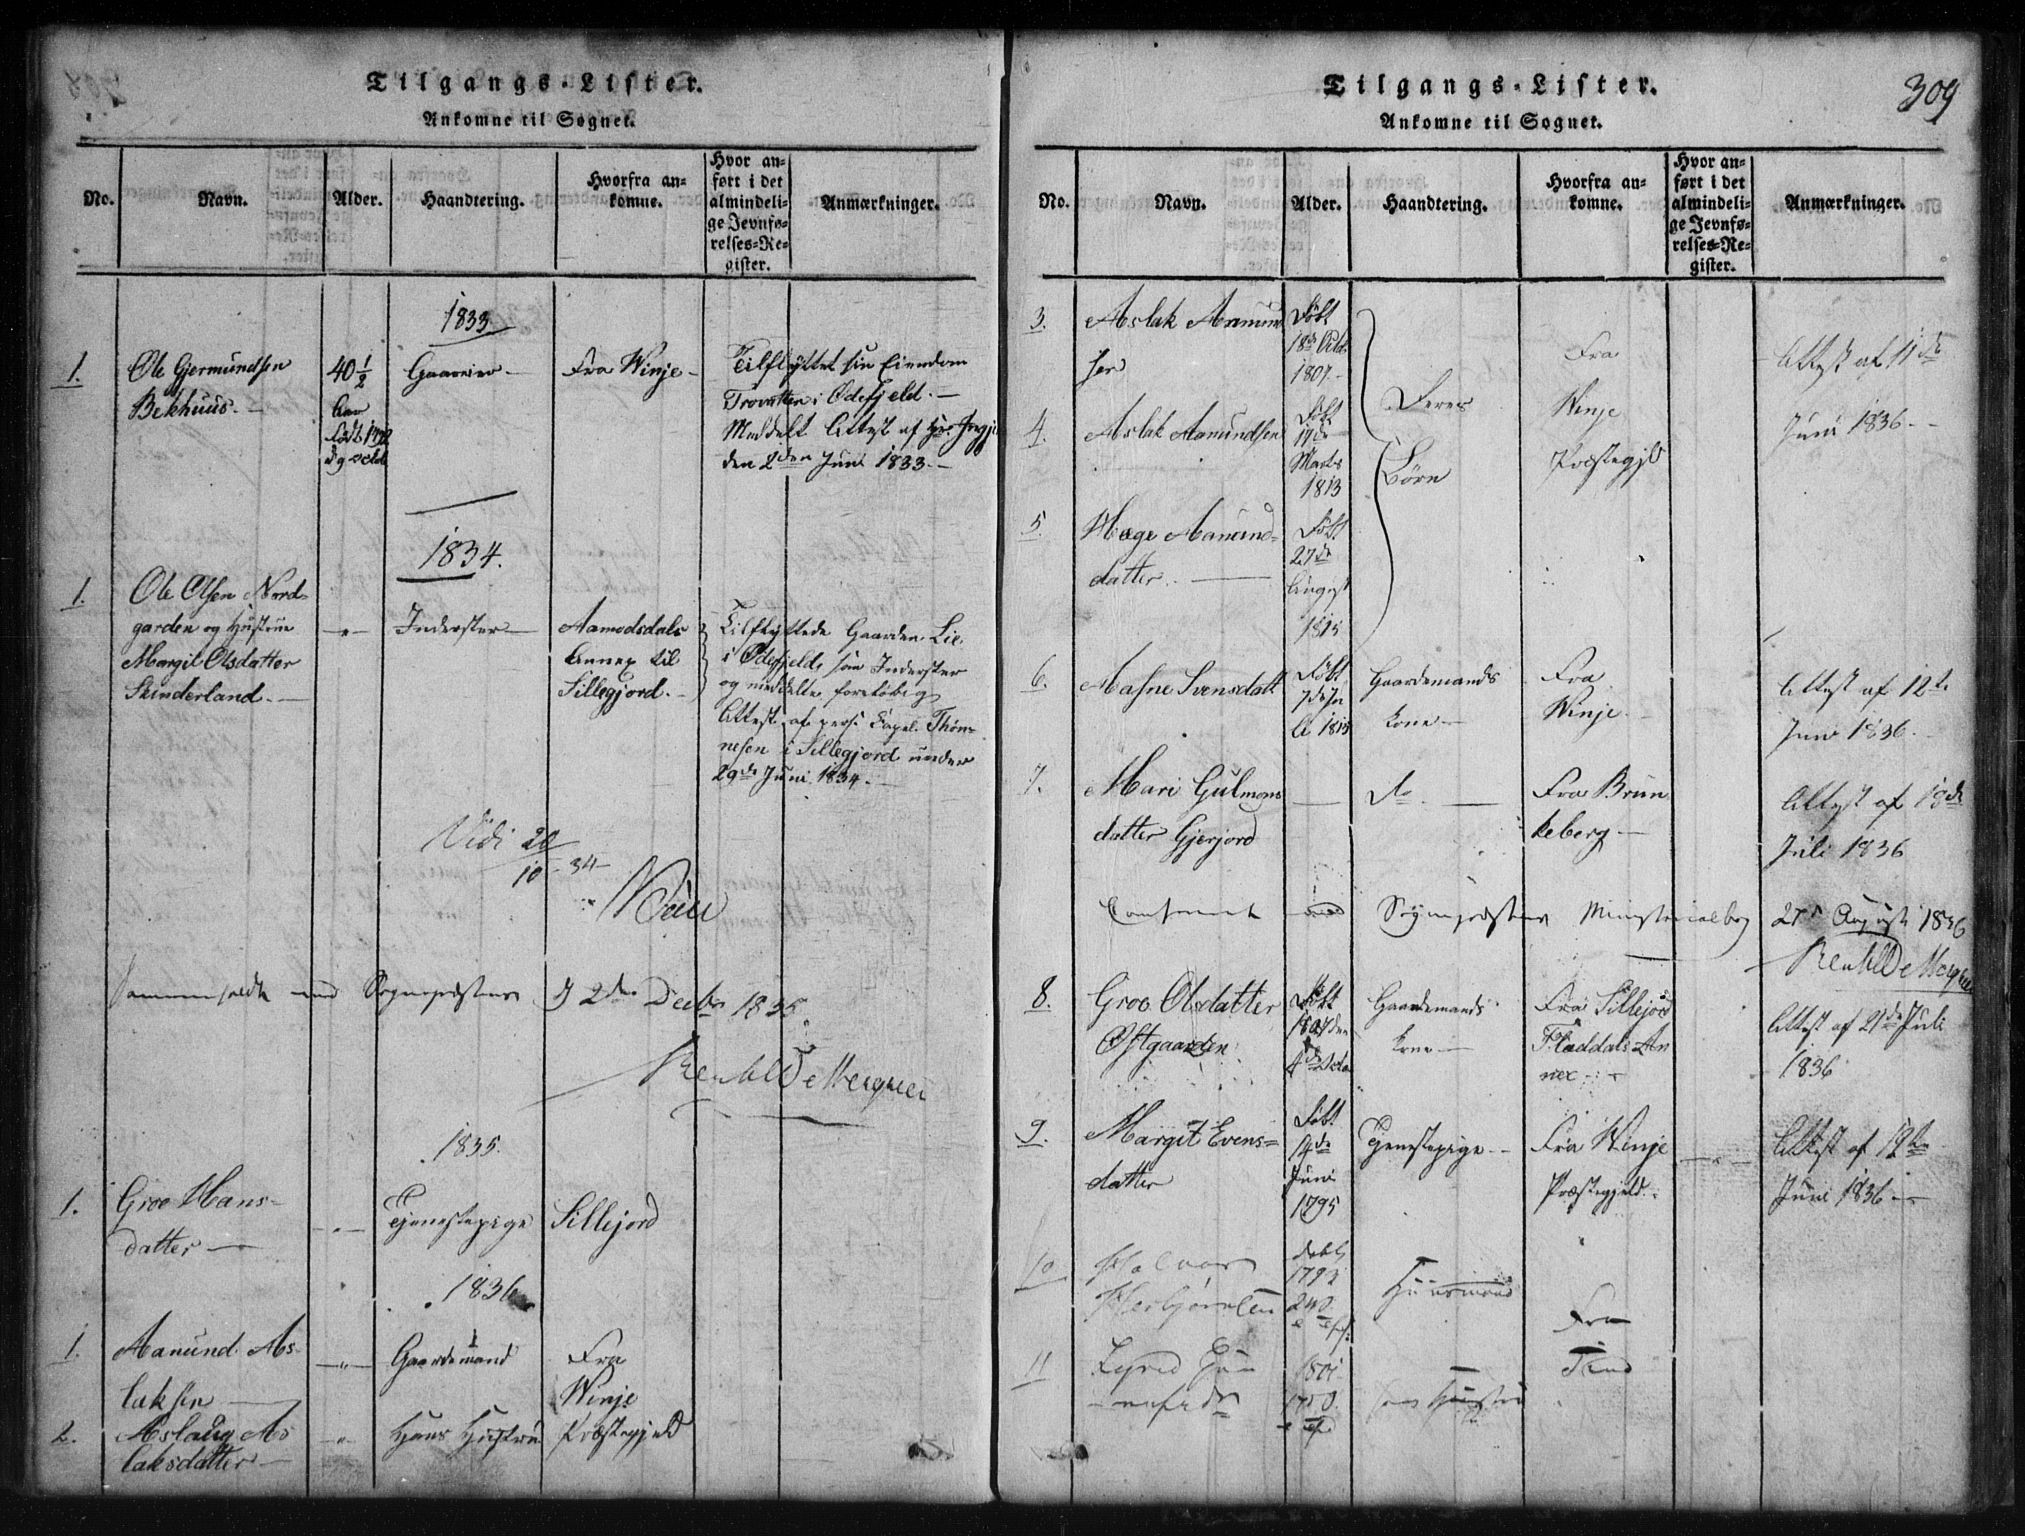 Tilgangs-Lister.
Ankomne til Sognet.
No.
Navn.
Alder.
Haandtering.
Hvorfra an-
komne.
Hvor an-
ført i det
almindeli-
ge Jevnfø-
relses-Re-
gister.
Anmærkninger.
1833
1.
Ole Gjermundsen
Bekhuus. —
40 1/2
Aar
Gaareier —
Fra Winje —
Tilflyttet sin Eiendom
i Ødefjeld. —
Meddelt Attest af
den 2den Juni 1833. —
1834.
1.
Ole Olsen Nord-
garden og Hustrue
Margit Olsdatter
Skinderland. —
— " —
Inderster —
Aamodsdals
Annex til
Sillegjord. —
Tilflyttede Gaarden Lie
i Ødefjeld som Inderster
og meddelte foreløbig
Attest af pers: Capel. Thøn-
nesen i Sillegjord under
29de Juni 1834. —
Vidi 20/10 - 34
Sognepræstens d 2den Decbr 1835
1835.
1.
Groe Hans-
datter —
— " —
Tjenestepige
Sillejord
1836
1.
Aanund As-
laksen —
— " —
Gaardemand
Fra
Winje
Præstegjeld
2.
Aslaug As
laksdatter —
— " —
Hans Hustru
Tilgangs-Lister.
309
Ankomne til Sognet.
No.
Navn.
Alder.
Haandtering.
Hvorfra an-
komne.
Hvor an-
ført i det
almindeli-
ge Jevnfø-
relses-Re-
gister.
Anmærkninger.
3.
Aslak Aanund
sen
Født
18de Octb.
1807 —
Deres
Børn
Fra
Winje
Præstegjld
Attest af 11de
Juni 1836. —
4.
Aslak Aanundsen
Født
17de
Marts
1813
5.
Hæge Aanund-
datter. —
Født
27de
August
1815
6.
Aasne Svensdatt
Født
7de Ju
li 1815
Gaardemands
kone —
Fra
Winje. —
Attest af 12te
Juni 1836. —
7.
Mari Gulmons
datter Gjerjord
—
do. —
Fra Brun
keberg —
Attest af 18de
Juli 1836
Sognepræstens Ministerialbog
27de August 1836
8.
Groe Olsdatter
Østgaarden
Født
Gaardemands
kone —
Fra Sillejord
Fladdals An
nex —
Attest af 21de Juli
1836
9.
Margit Evens-
datter
Født
14de
Juni
1795
Tjenestepige —
Fra Winje
Præstegjeld. —
— " —
Attest af 19de
Juni 1836 —
10
Halvor
døbt
1793
Huusmand
Fra
Tind
11
1801
hans Hustru